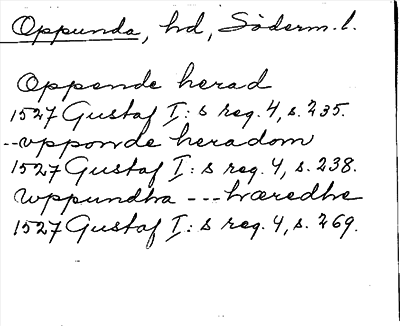 Oppunda, hd, Söderm. l.
Oppende herad
1527 Gustaf I:s reg. 4, s. 235.
--vpponde heradom
1527 Gustaf I:s reg. 4, s. 238.
Wppundha --- hæredhe
1527 Gustaf I:s reg. 4, s. 269.